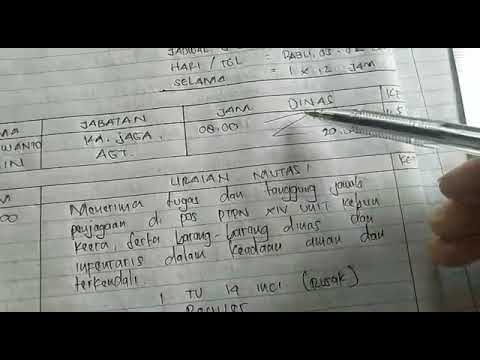 JADWAL
HARI / TGL = RABU, 03
SELAMA = 1 x 12 JAM
MA JABATAN JAM DINAS KET
WANTO KA. JAGA 08.00 20.00
IN AGT.
URAIAN MUTASI KET
00 Menerima tugas dan tanggung jawab
penjagaan di pos PTPN XIV UNIT Kebun
Keera, serta barang-barang dinas dan
inventaris dalam keadaan aman dan
terkendali.
1 TV 14 INCI (RUSAK)